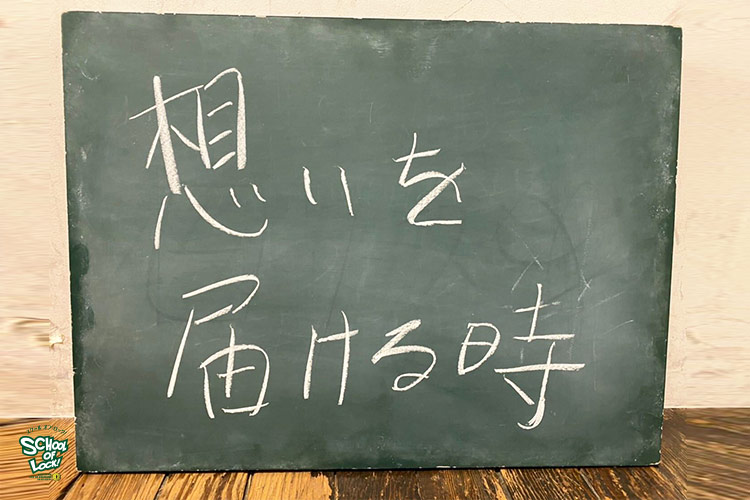 想いを
届ける時
SCHOOL
OF
LOCK!